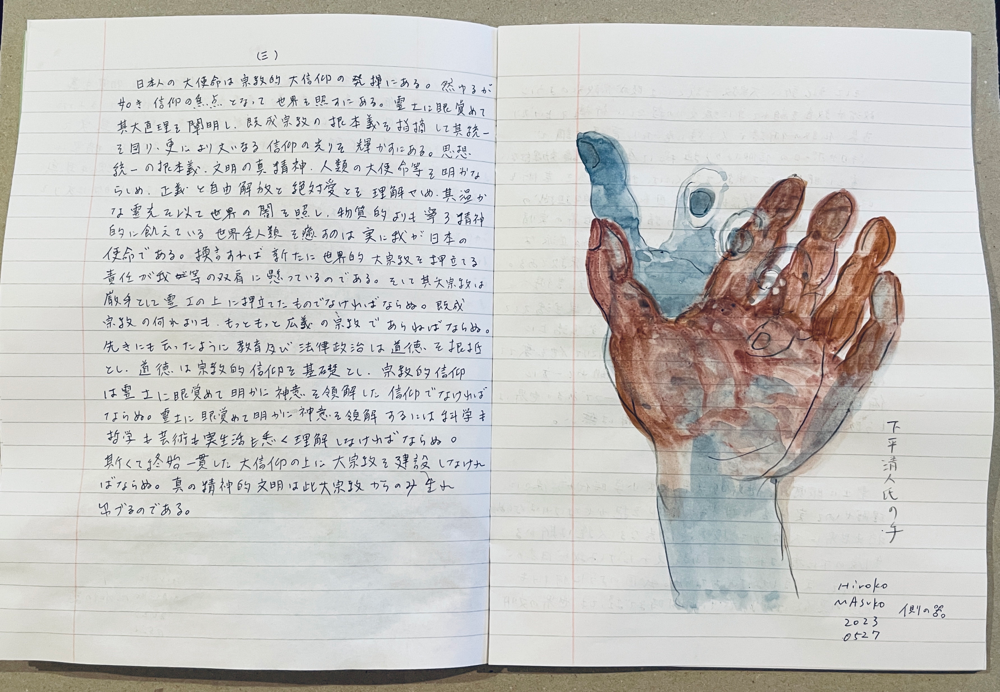 (三)
日本人の大使命は宗教的大信仰の発揮にある。燃ゆるが
如き信仰の焦点となって世界を照すにある。霊土に眼覚めて
其大真理を闡明し、既成宗教の根本義を指摘して其統一
を図り、更により大いなる信仰の光りを輝かすにある。思想
統一の根本義、文明の真精神、人類の大使命等を明かな
らしめ、正義と自由解放と絶対愛とを理解せしめ、其温か
な霊光を以て世界の闇を照し、物質的よりも寧ろ精神
的に飢えている世界全人類を癒すのは実に我が日本の
使命である。換言すれば新たに世界的大宗教を押立てる
責任が我等の双肩に懸っているのである。そして其大宗教は
厳乎として霊工の上に押立てたものでなければならぬ。既成
宗教の何れよりも、もっともっと広義の宗教であらねばならぬ。
先きにも云ったように教育及び法律政治は道徳を根抵
とし、道徳は宗教的信仰を基礎とし、宗教的信仰
は霊土に眼覚めて明かに神意を領解した信仰でなければ
ならぬ。霊土に眼覚めて明かに神意を領解するには科学も
哲学も芸術も実生活も悉く理解しなければならぬ。
斯くて終始一貫した大信仰の上に大宗教を建設しなけれ
ばならぬ。真の精神的文明は此大宗教からのみ生れ
出づるのである。
下平清人氏の手
Hiroko
MAsuko
2023
0527